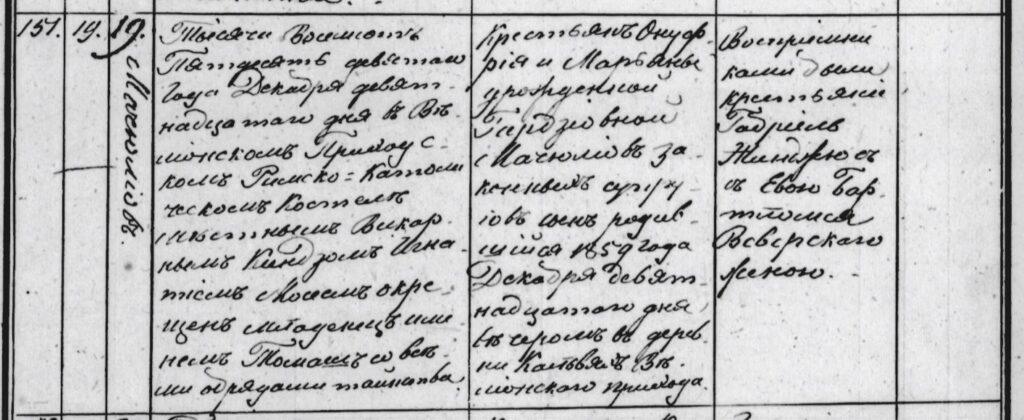 151. 19. 19.
Мачюліовъ.
Тысяча Восемьсотъ
Пятдесятъ девятаго
года Декабря девят-
надцатаго дня въ Вѣ-
монскомъ Приходс-
комъ Римско-Католи
ческомъ Костелѣ
мѣстнымъ Викар-
нымъ Ксендзомъ Игна-
тіемъ окре-
щенъ младенецъ име-
немъ Томашъ со всѣ-
ми обрядами таинства
Крестьянъ Онуф-
рія и Марьяны
урожденной
Мачюліовъ за-
конныхъ супру-
говъ сынъ родив-
шійся 1859 года
Декабря девят-
надцатаго дня
вечеромъ въ дерев-
ни Вѣ-
монскаго прихода.
Воспріемни
ками были
крестьяне
Габріель
съ
съ Евою Бар-
тломея
Веверскаго
женою.